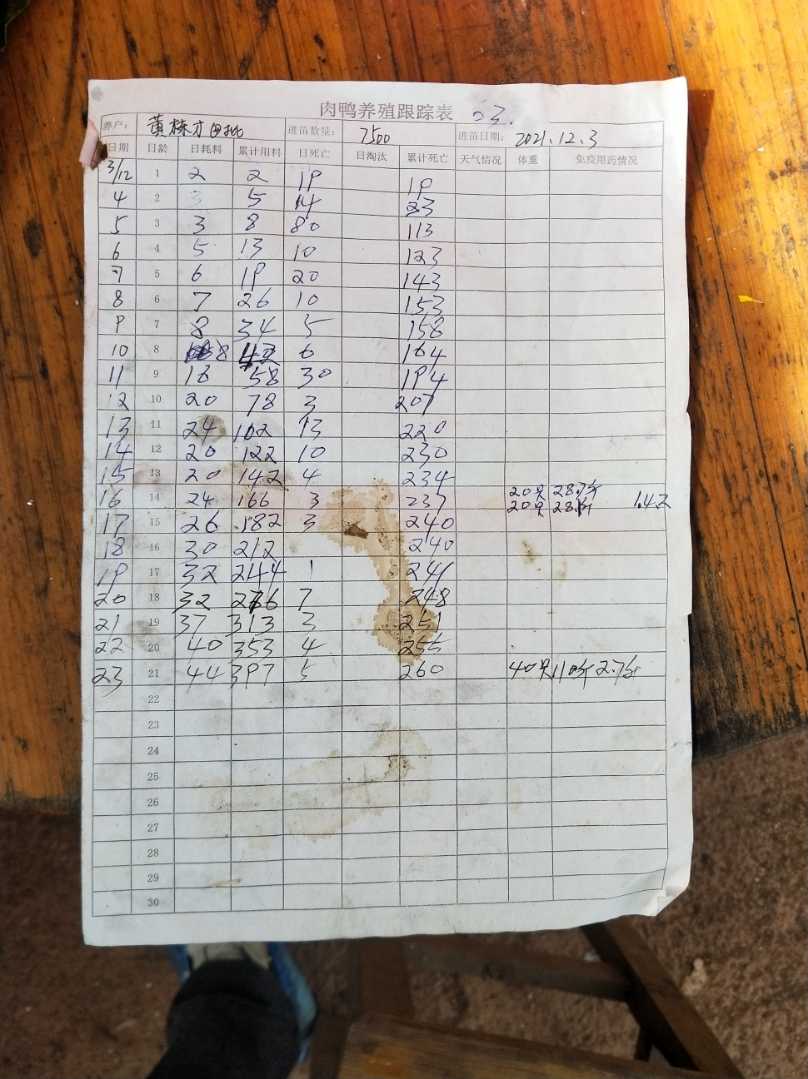 肉鸭养殖跟踪表
养户： 黄栋才 进苗数量： 7500 进苗日期： 2021.12.3
日期 日龄 日耗料 累计用料 日死亡 日淘汰 累计死亡 天气情况 体重 免疫用药情况
3/12 1 2 2 19 19
4 2 3 5 14 33
5 3 3 8 80 113
6 4 5 13 10 123
7 5 6 19 20 143
8 6 7 26 10 153
9 7 8 34 5 158
10 8 8 42 6 164
11 9 16 58 30 194
12 10 20 78 3 207
13 11 24 102 13 220
14 12 20 122 10 230
15 13 20 142 4 234
16 14 24 166 3 237 20只 28.5斤 1.42
20只
17 15 26 182 3 240
18 16 30 212 240
19 17 32 244 1 241
20 18 32 276 7 248
21 19 37 313 3 251
22 20 40 353 4 255
23 21 44 397 5 260 40只 110斤 2.7斤
22
23
24
25
26
27
28
29
30